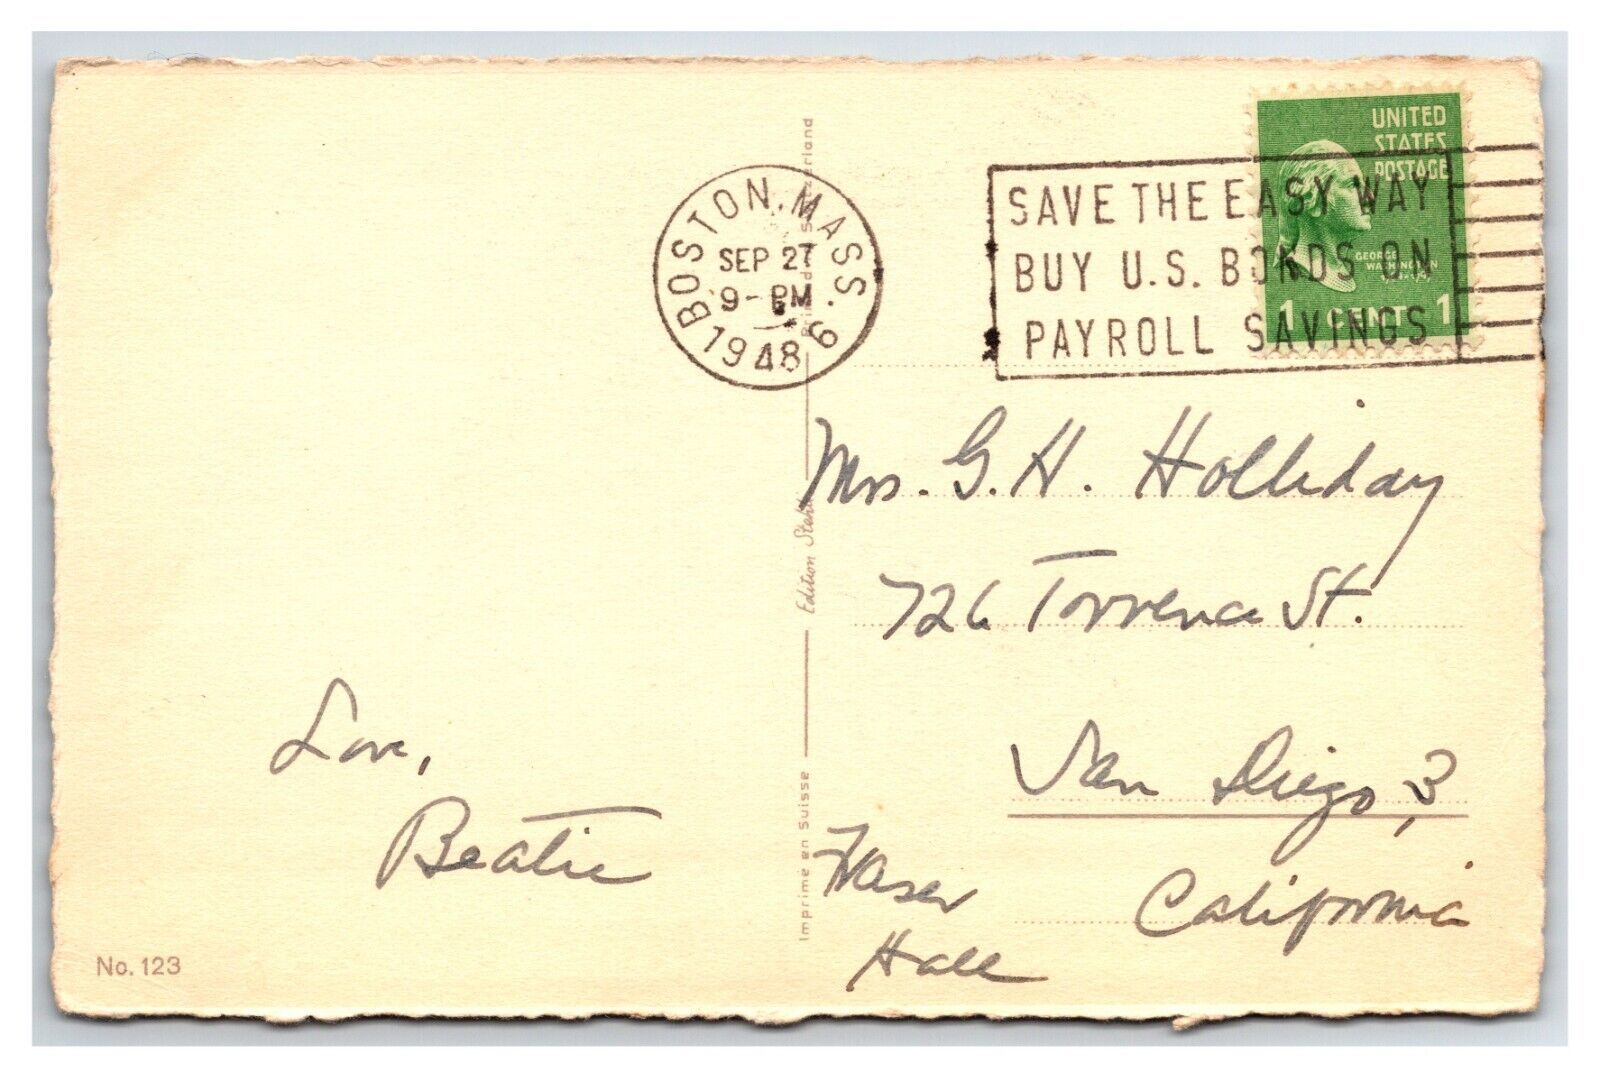 BOSTON, MASS. 6
SEP 27
9 - PM
1948
SAVE THE EASY WAY
BUY U.S. BONDS ON
PAYROLL SAVINGS
UNITED
STATES
POSTAGE
GEORGE
WASHINGTON
1 CENT 1
Mrs. G. H. Holliday
726 Torrence St.
San Diego, 3
California
Love,
Beatie
Hall
No. 123
Imprimé en Suisse
Edition